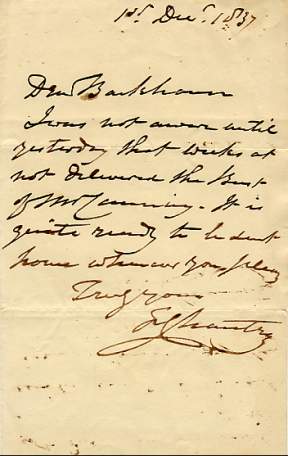 1st Decr. 1837
Dear Backhouse
I was not aware until
yesterday that Weekes had
not delivered the Bust
of Mr Canning. It is
quite ready to be sent
home whenever you please
Truly yours
F Chantrey